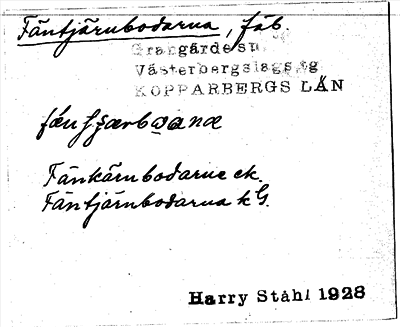 Täntjärnbodarna, fäb.
Grangärde sn
Västerbergslags tg
KOPPARBERGS LÄN
Tänkärnbodarne ek.
Täntjärnbodarna k G.
Harry Ståhl 1928